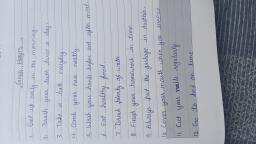 Good Habits
1. Get up early in the morning.
2. Brush your teeth twice a day
3. Take a bath everyday
4. Comb your hair neatly
5. Wash your hands before and after meal.
6. Eat healthy food
7. Drink plenty of water
8. Finish your homework in time.
9. Always put the garbage in dustbin.
10. Cover your mouth when you sneeze
11. Cut your nails regularly
12. Go to bed on time